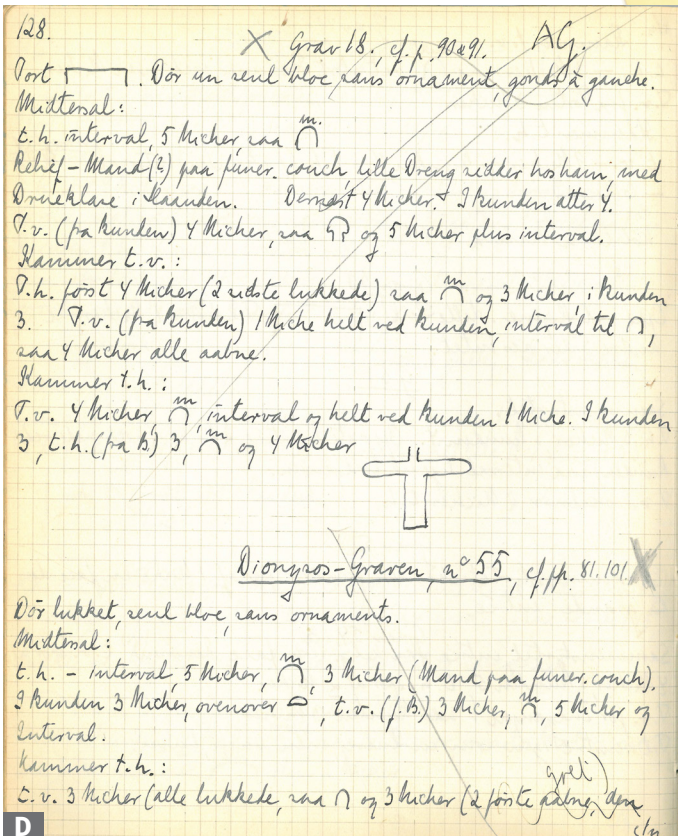 128.
Grav 18, cf. p. 90 & 91. AG.
Port . Dör un seul bloc sans ornament, gonds à gauche.
Midtersal:
t. h. interval, 5 Nicher, saa m.
Relief – Mand (?) paa funer. couch, lille Dreng sidder hos ham, med
Drueklase i Haanden. Dernæst 4 Nicher. I bunden atter 4.
T. v. (fra bunden) 4 Nicher, saa og 5 Nicher plus interval.
Kammer t. v.:
T. h. først 4 Nicher (2 sidste lukkede) saa m og 3 Nicher, i bunden
3. T. v. (fra bunden) 1 Niche helt ved bunden, interval til ,
saa 4 Nicher alle aabne.
Kammer t. h.:
T. v. 4 Nicher, m, interval og helt ved bunden 1 Niche. I bunden
3, t. h. (fra B.) 3, m og 4 Nicher
Dionysos-Graven, nº 55, cf. pp. 81. 101.
Dör lukket, seul bloc, sans ornaments.
Midtersal:
t. h. – interval, 5 Nicher, m, 3 Nicher (Mand paa funer. couch).
I bunden 3 Nicher, ovenover , t. v. (f. B.) 3 Nicher, m, 5 Nicher og
Interval.
Kammer t. h.:
t. v. 3 Nicher (alle lukkede, saa og 3 Nicher (2 første aabne, den
D